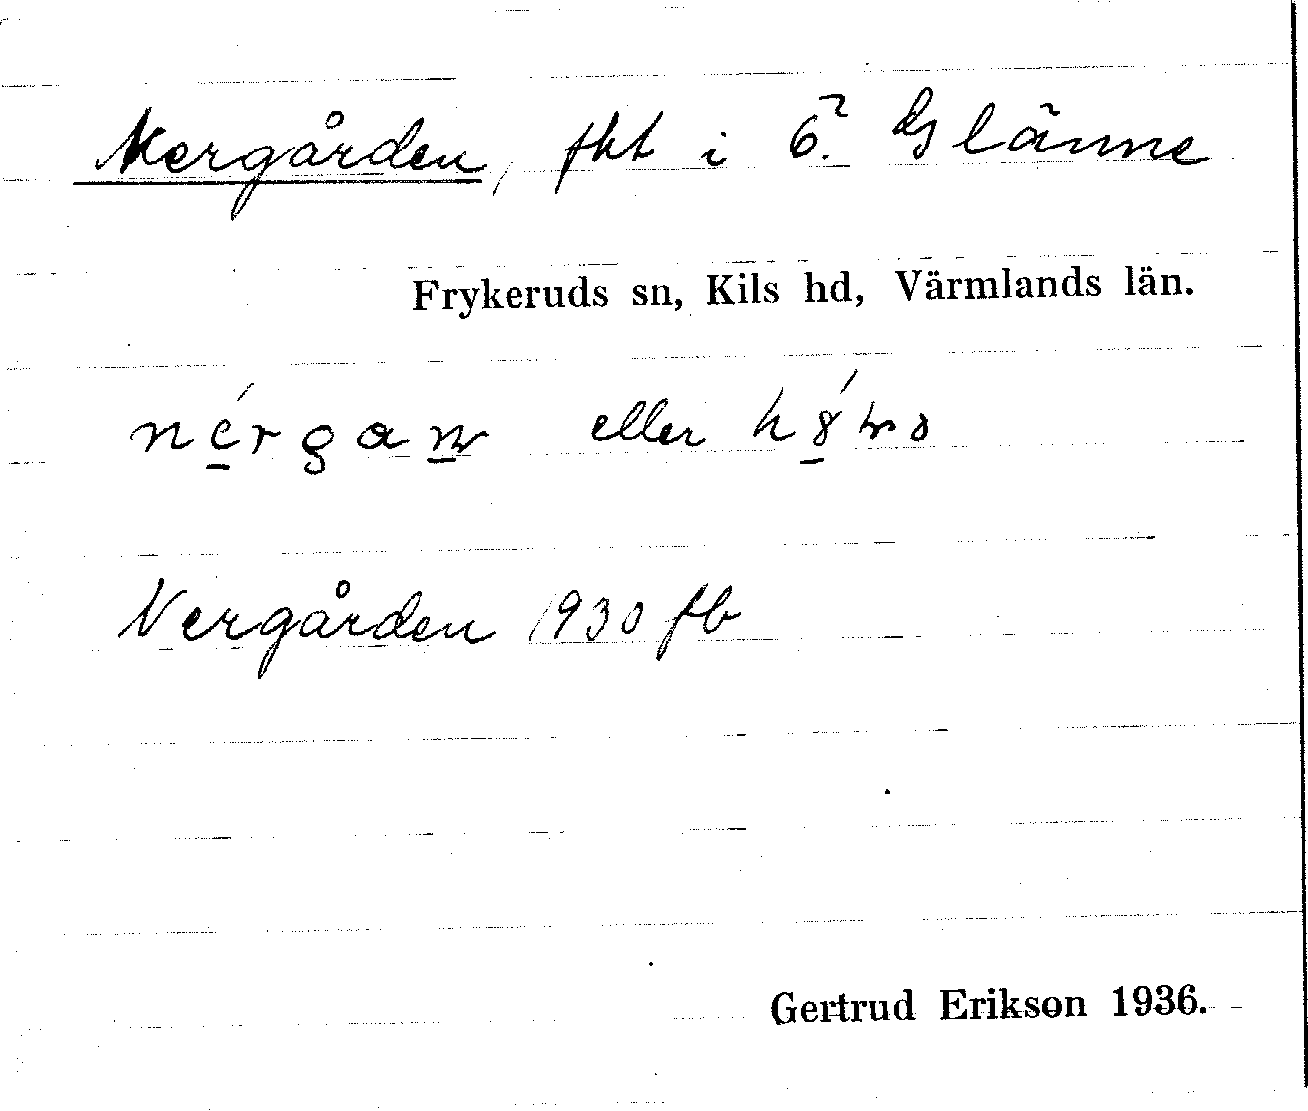 Nergården, fkt i 6? Glänne
Frykeruds sn, Kils hd, Värmlands län.
nérgaɳ eller
Nergården 1930 fb
Gertrud Erikson 1936.